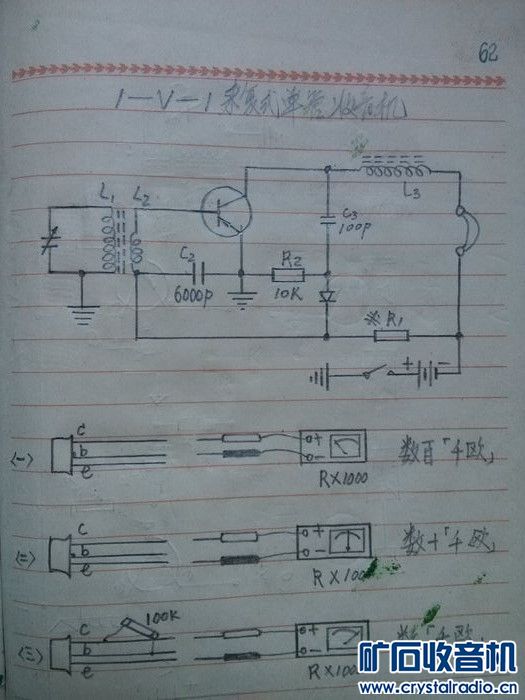 62
1—V—1 来复式单管收音机
L₁ L₂
L₃
C₃
100p
C₂
6000p
R₂
10K
※R₁
+ −
(一) c b e + − RX1000 数百「千欧」
(二) c b e + − RX100 数十「千欧」
(三) c b e 100K + − RX100 「千欧」
矿石收音机
www.crystalradio.cn